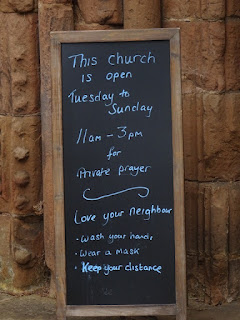 This Church
is open
Tuesday to
Sunday
11am - 3pm
for
Private prayer
Love your neighbour
• Wash your hands
• Wear a mask
• Keep your distance